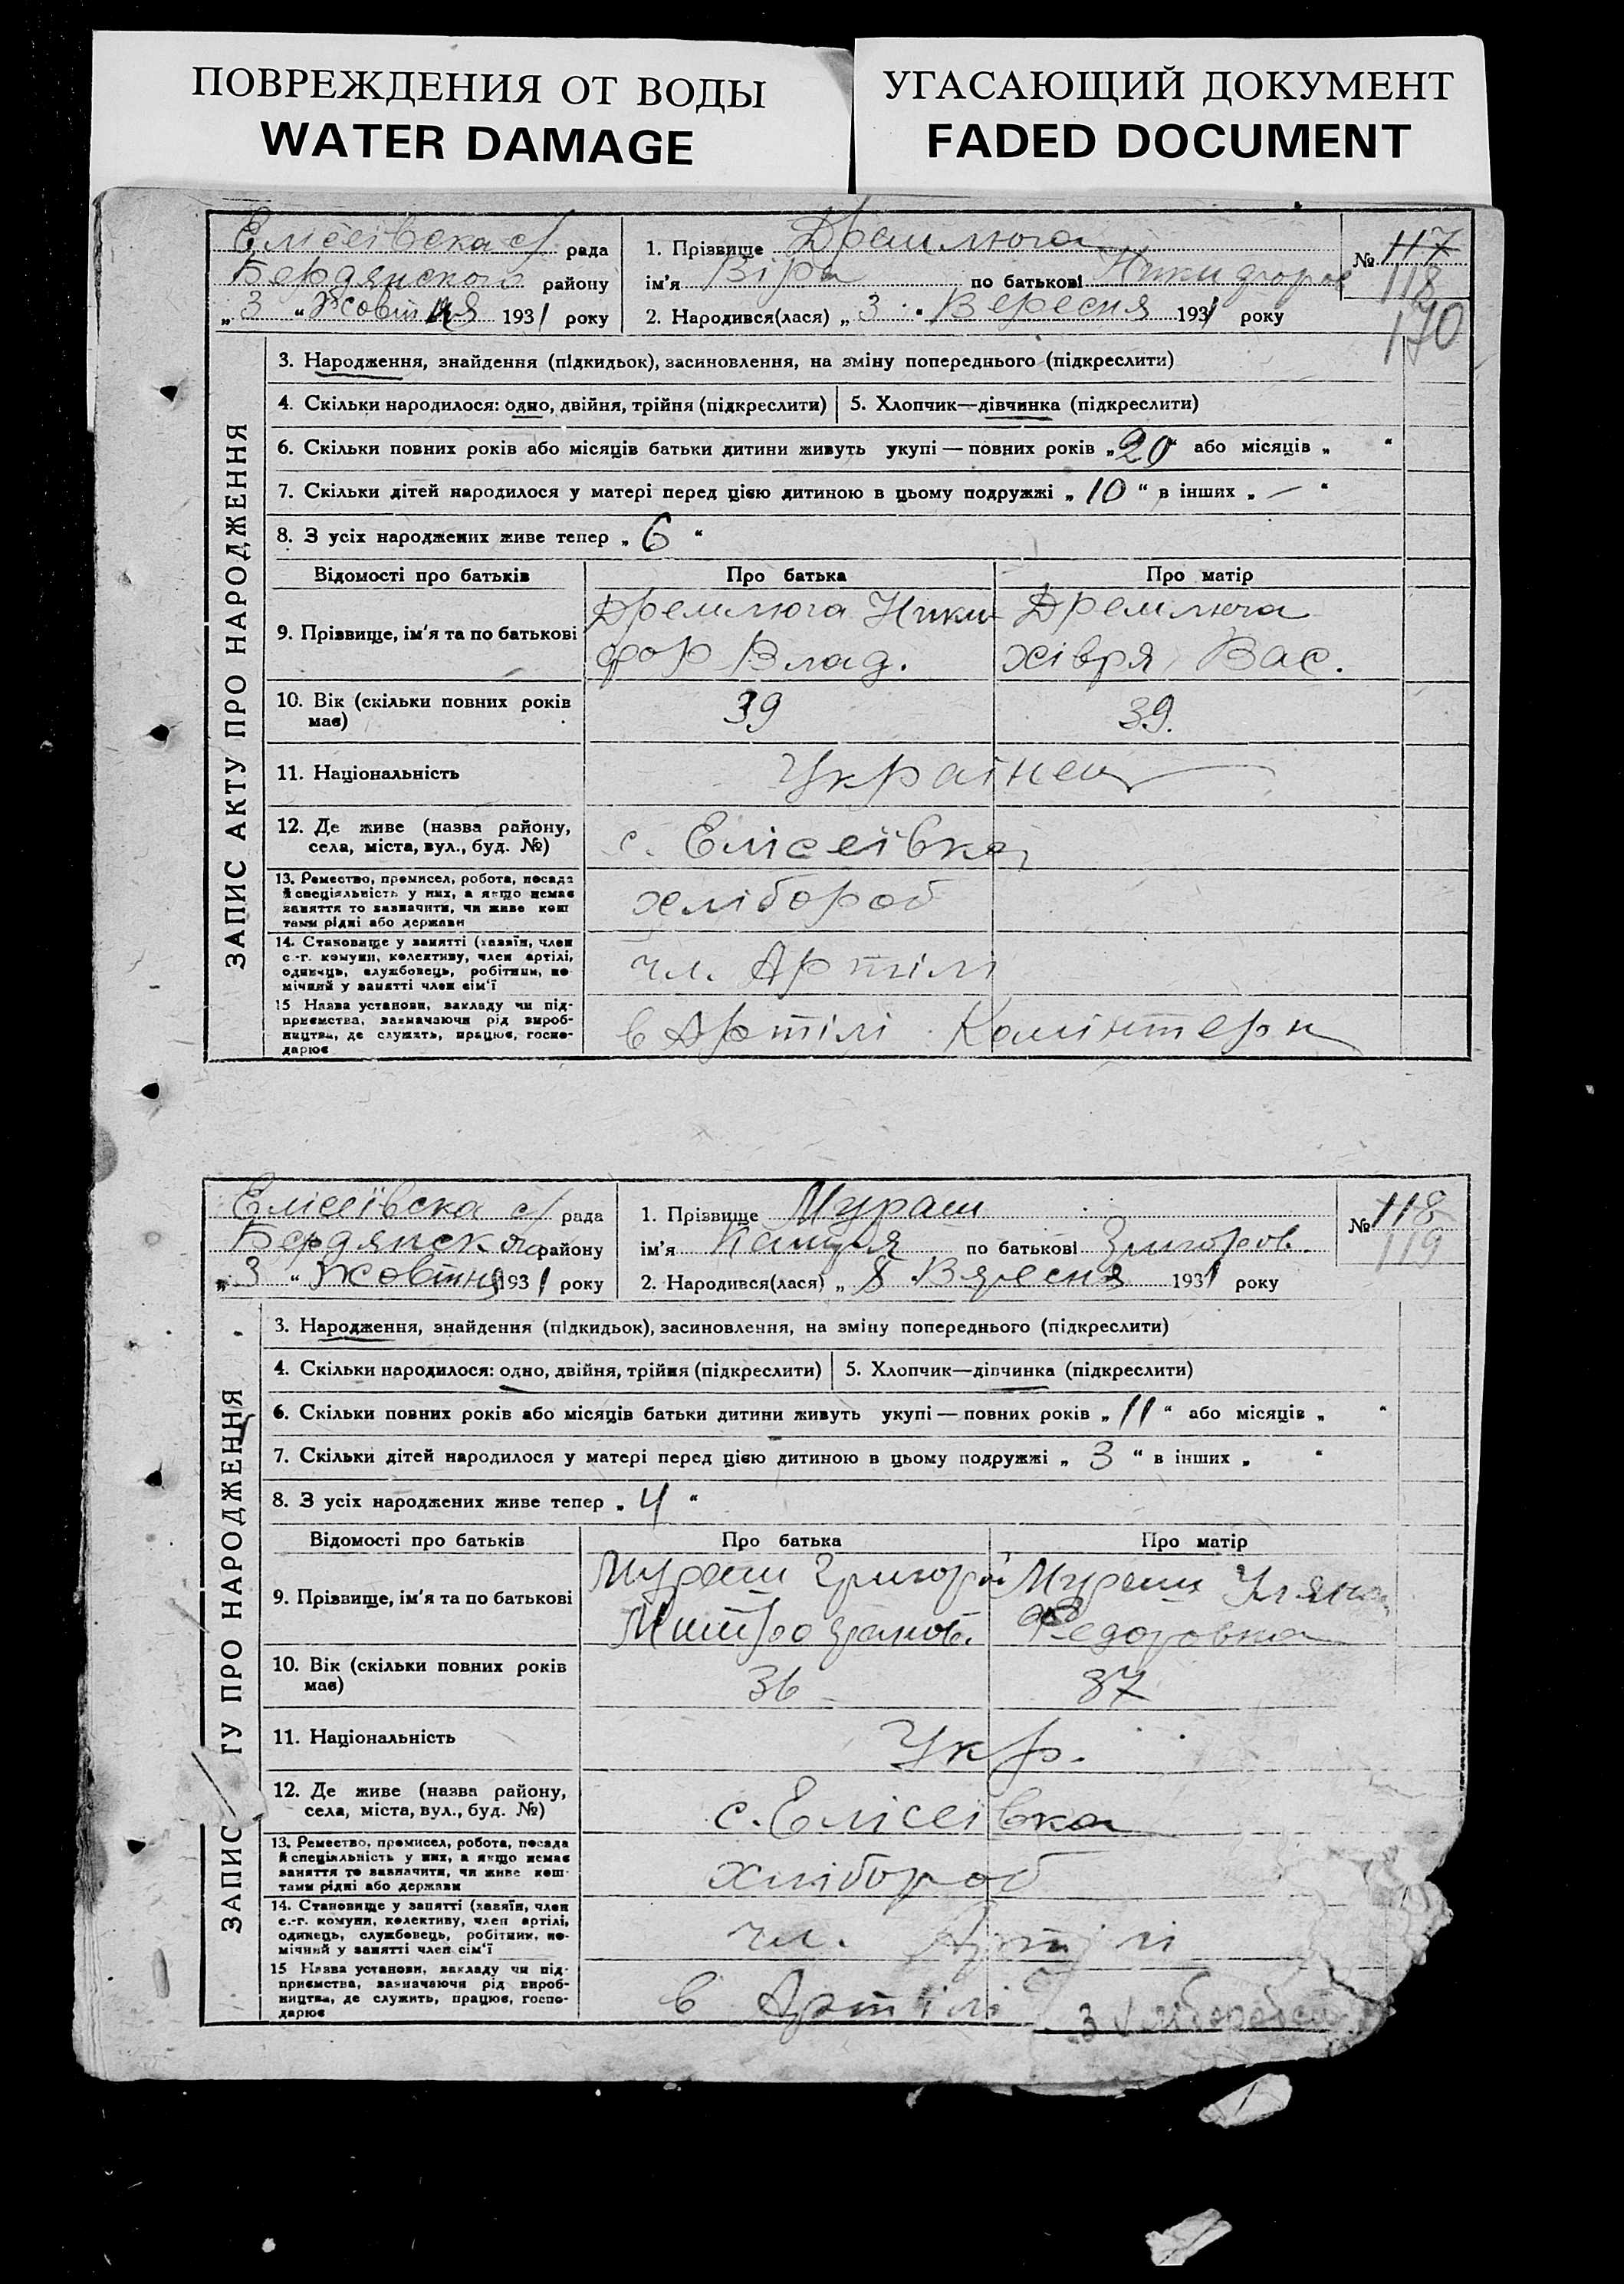 ПОВРЕЖДЕНИЯ ОТ ВОДЫ
WATER DAMAGE
УГАСАЮЩИЙ ДОКУМЕНТ
FADED DOCUMENT
ЗАПИС АКТУ ПРО НАРОДЖЕННЯ
Елісеївска с/ рада
Бердянского району
„3 “ Жовтня 1931 року
1. Прізвище Дремлюга
ім'я Віра по батькові Никифоров
2. Народився(лася) „ 3 “ Вересня 1931 року
№ 117
118
170
3. Народження, знайдення (підкидьок), засиновлення, на зміну попереднього (підкреслити)
4. Скільки народилося: одно, двійня, трійня (підкреслити) 5. Хлопчик—дівчинка (підкреслити)
6. Скільки повних років або місяців батьки дитини живуть укупі — повних років „20“ або місяців „ “
7. Скільки дітей народилося у матері перед цією дитиною в цьому подружжі „ 10 “ в інших „ — “
8. З усіх народжених живе тепер „ 6 “
Відомості про батьків Про батька Про матір
9. Прізвище, ім'я та по батькові
Дремлюга Ники
фор Влад.
Дремлюга
Хівря Вас.
10. Вік (скільки повних років
має)
39
39.
11. Національність
Українец
12. Де живе (назва району,
села, міста, вул., буд. №)
с. Елісеївка
13. Ремество, промисел, робота, посада
й спеціяльність у них, а якщо немає
заняття то зазначити, чи живе кош
тами рідні або держави
хлібороб
14. Становище у занятті (хазяїн, член
с.-г. комуни, колективу, член артілі,
одинець, службовець, робітник, по-
мічний у занятті член сім'ї
чл. Артілі
15 Назва установи, закладу чи під-
приємства, зазначаючи рід вироб-
ництва, де служить, працює, госпо-
дарює
в Артілі Комінтерн
ЗАПИС ТУ ПРО НАРОДЖЕННЯ
Елісеївска с/ рада
Бердянского району
„ 3 “ Жовтня 1931 року
1. Прізвище Мураш
ім'я по батькові Григоров.
2. Народився(лася) „ 8 Вяресня 1931 року
№ 118
119
3. Народження, знайдення (підкидьок), засиновлення, на зміну попереднього (підкреслити)
4. Скільки народилося: одно, двійня, трійня (підкреслити) 5. Хлопчик—дівчинка (підкреслити)
6. Скільки повних років або місяців батьки дитини живуть укупі — повних років „ 11 “ або місяців „ “
7. Скільки дітей народилося у матері перед цією дитиною в цьому подружжі „ 3 “ в інших „ “
8. З усіх народжених живе тепер „ 4 “
Відомості про батьків Про батька Про матір
9. Прізвище, ім'я та по батькові
Мураш Григорій
Митрофанов.
Мураш Уляна
Федоровна
10. Вік (скільки повних років
має)
36
37
11. Національність
Укр.
12. Де живе (назва району,
села, міста, вул., буд. №)
с. Елісеївка
13. Ремество, промисел, робота, посада
й спеціяльність у них, а якщо немає
заняття то зазначити, чи живе кош-
тами рідні або держави
хлібороб
14. Становище у занятті (хазяїн, член
с.-г. комуни, колективу, член артілі,
одинець, службовець, робітник, по-
мічний у занятті член сім'ї
чл. Артілі
15 Назва установи, закладу чи під-
приємства, зазначаючи рід вироб-
ництва, де служить, працює, госпо-
дарює
в Артілі